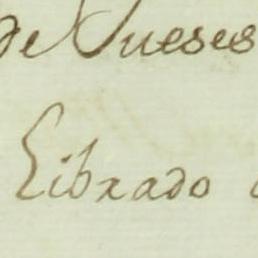 de Nueses
Librado